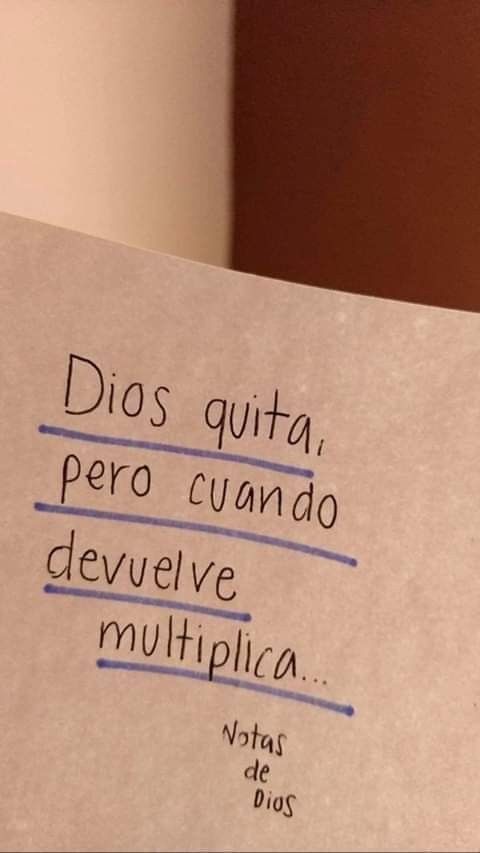 Dios quita,
pero cuando
devuelve
multiplica...
Notas
de
Dios